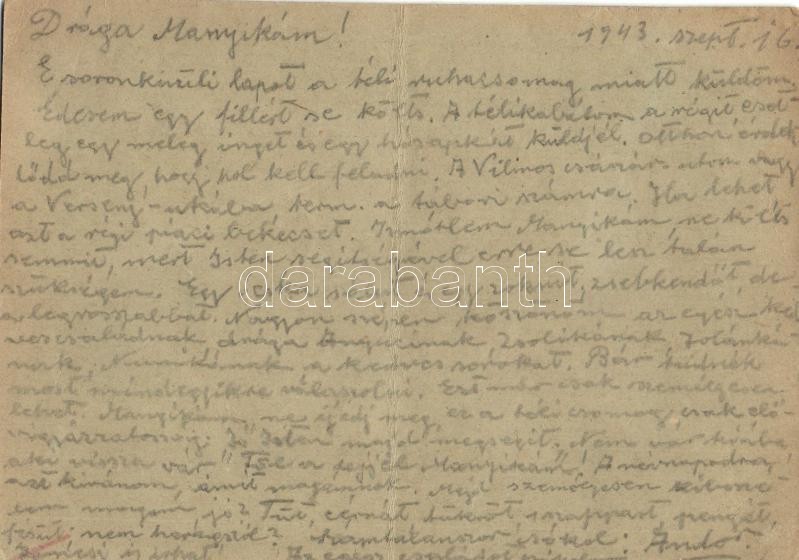 Drága Manyikám! 1943. szept. 16.
E soronkívüli lapot a téli ruhacsomag miatt küldöm.
Édesem egy fillért se költs. A télikabátom a régit eset-
leg egy meleg inget és egy hósapkát küldjél. Otthon érdek-
lődd meg, hogy hol kell feladni. A Vilmos császár uton vagy
a Verseny-utcába term. a tábori számra. Ha lehet
azt a régi piaci bekecset. Ismétlem Manyikám ne költs
semmit, mert Isten segítségével erre se lesz talán
szükségem. Egy zoknit, zsebkendőt de
a legrosszabbat. Nagyon szépen köszönöm az egész ked-
ves családnak drága Anyucinak Zsolikának Jolánká-
nak, a kedves sorokat. Bár tudnék
most mindegyikre válaszolni. Ezt már csak személyesen
lehet. Manyikám, ne ijedj meg, ez a téli csomag csak elő-
vigyázatosság. Jó Isten majd megsegít. Nem vár hiába
aki vissza vár. Fel a fejjel Manyikám! A névnapodra
azt kívánom, amit magamnak. Majd személyesen
jó? Tűt, cérnát tükröt szappant pengét,
fésűt, nem haragszol? Számtalanszor csókol: Andor
darabanth